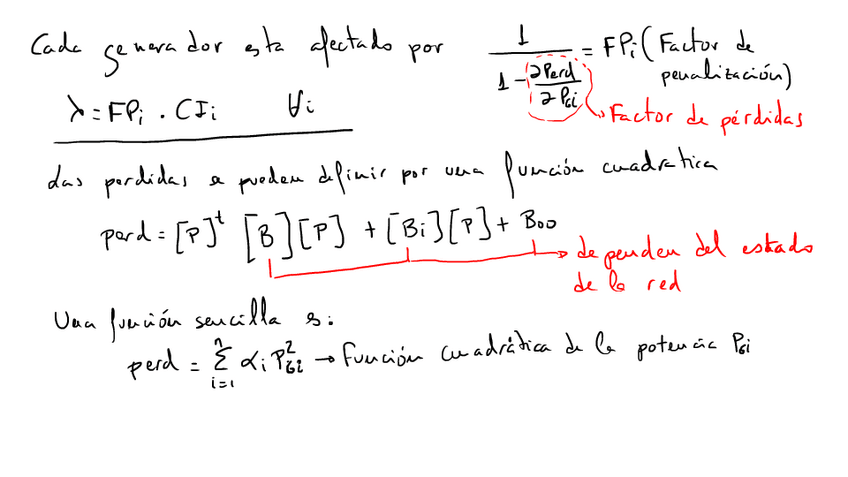 Cada generador esta afectado por 1 / (1 - ∂Perd/∂PGi) = FPi (Factor de penalización)
λ = FPi . CIi ∀i
Factor de pérdidas
Las perdidas se pueden definir por una función cuadratica
perd = [P]^t [B][P] + [Bi][P] + Boo
dependen del estado
de la red
Una función sencilla es:
perd = Σ_{i=1}^{n} αi PGi^2 → Función cuadrática de la potencia PGi